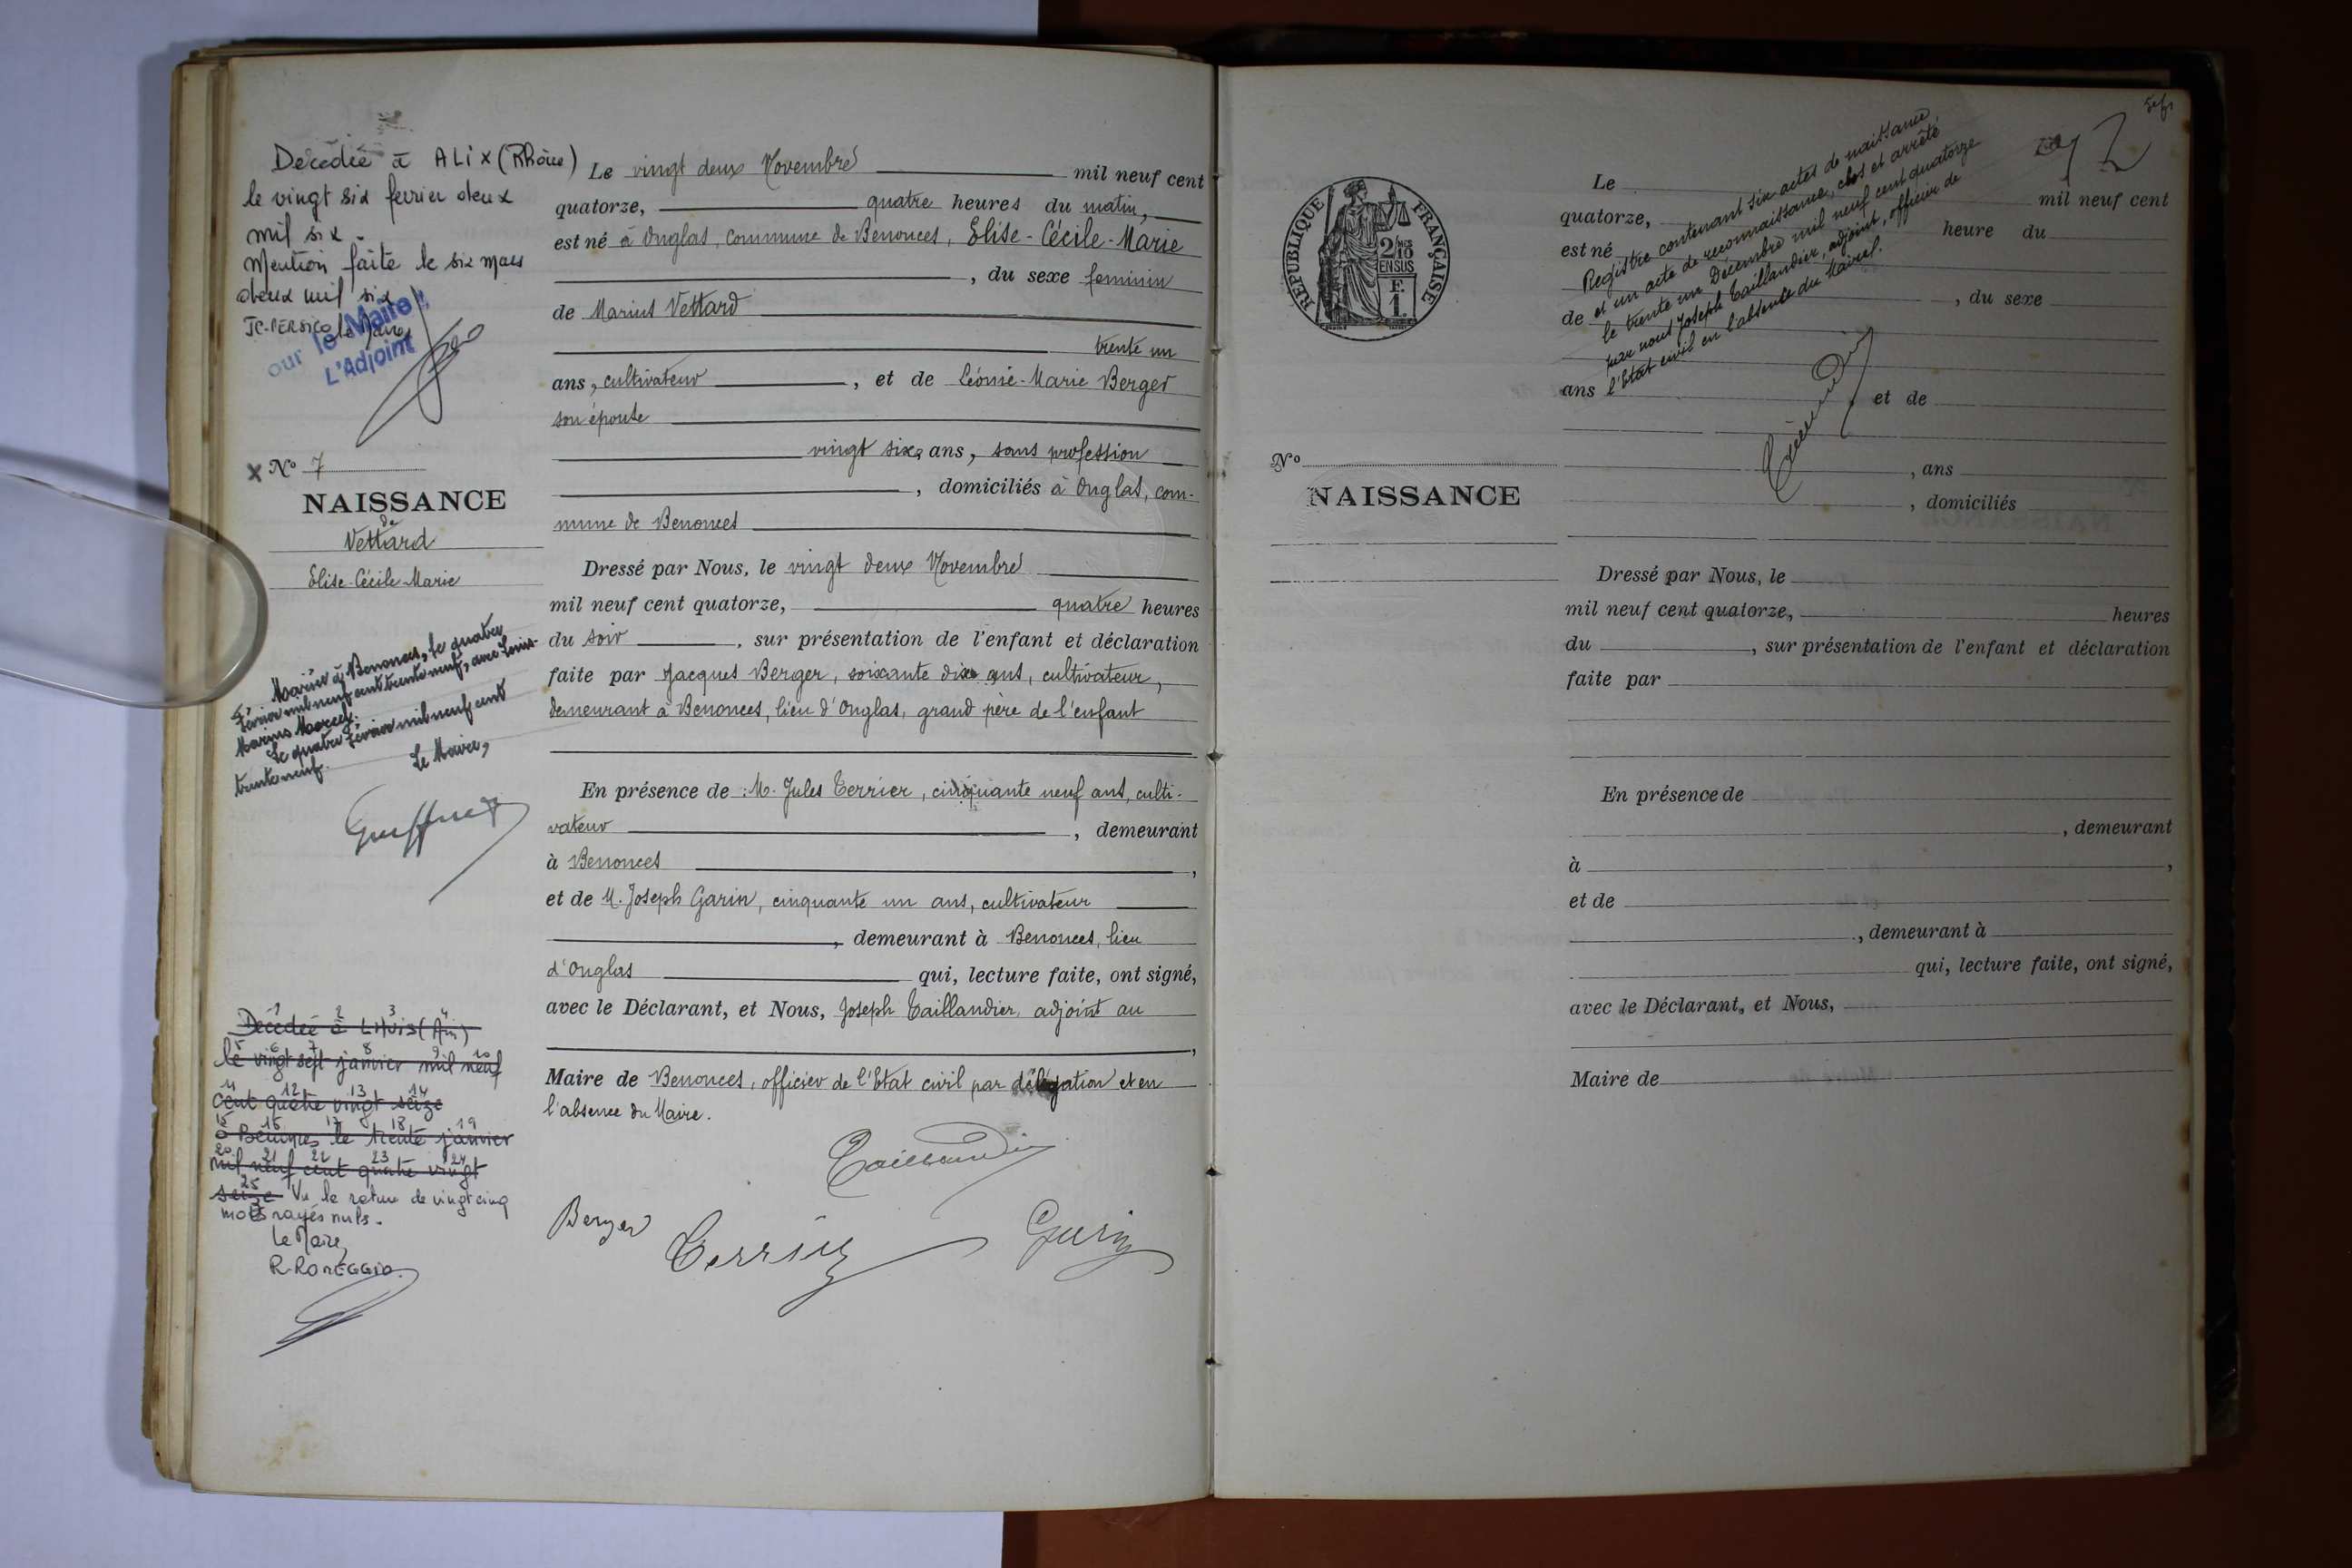 Décédée à ALIX (Rhône)
le vingt six fevrier deux
mil six.
Mention faite le six mars
deux mil six
le Maire
our le Maire
L'Adjoint
X Nº 7
NAISSANCE
de
Vettard
Elise-Cécile-Marie
Mariée à Benonces, le quatre
Février mil neuf cent trente neuf, avec Louis-
Marius Marcel.
Le quatre Février mil neuf cent
trente neuf.
Le Maire,
1 2 3 4
Décédée à LHUIS (Ain)
5 6 7 8 9 10
le vingt sept janvier mil neuf
11 12 13 14
cent quatre vingt seize
15 16 17 18 19
à Benonces le trente janvier
20 21 22 23 24
mil neuf cent quatre vingt
25
seize Vu la rature de vingt cinq
mots rayés nuls.
Le Maire,
Le vingt deux Novembre mil neuf cent
quatorze, quatre heures du matin,
est né à Onglas, commune de Benonces, Elise-Cécile-Marie
, du sexe feminin
de Marius Vettard
trente un
ans, cultivateur , et de Léonie-Marie Berger
son épouse
vingt six ans, sans profession
, domiciliés à Onglas, com-
mune de Benonces
Dressé par Nous, le vingt deux Novembre
mil neuf cent quatorze, quatre heures
du soir , sur présentation de l'enfant et déclaration
faite par Jacques Berger, soixante dix ans, cultivateur,
demeurant à Benonces, lieu d'Onglas, grand père de l'enfant
En présence de : M. Jules Terrier, cinquante neuf ans, culti-
vateur , demeurant
à Benonces ,
et de M. Joseph Garin, cinquante un ans, cultivateur
, demeurant à Benonces, lieu
d'Onglas qui, lecture faite, ont signé,
avec le Déclarant, et Nous, Joseph Taillandier, adjoint au
,
Maire de Benonces, officier de l'Etat civil par délégation et en
l'absence du Maire.
Taillandier
Berger
Terrier
Garin
RÉPUBLIQUE FRANÇAISE
2/10
EN SUS
F.
1.
Nº
NAISSANCE
Le mil neuf cent
quatorze, heure du
est né
, du sexe
de
ans et de
, ans
, domiciliés
Registre contenant six actes de naissance
et un acte de reconnaissance, clos et arrêté
le trente un Décembre mil neuf cent quatorze
par nous Joseph Taillandier, adjoint, officier de
l'Etat civil en l'absence du Maire.
Dressé par Nous, le
mil neuf cent quatorze, heures
du , sur présentation de l'enfant et déclaration
faite par
En présence de
, demeurant
à ,
et de
, demeurant à
qui, lecture faite, ont signé,
avec le Déclarant, et Nous,
Maire de